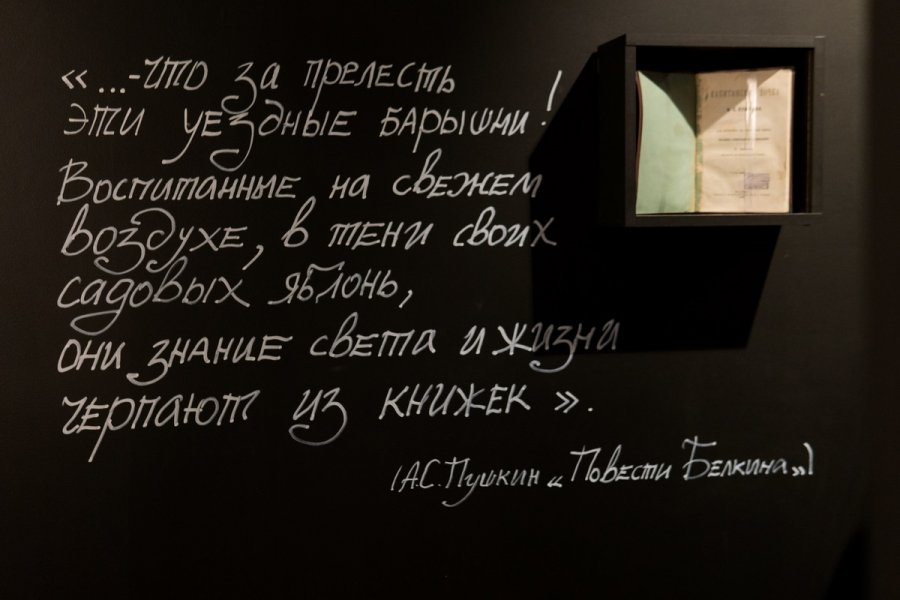 «...-Что за прелесть
эти уездные барышни!
Воспитанные на свежем
воздухе, в тени своих
садовых яблонь,
они знание света и жизни
черпают из книжек».
(А.С.Пушкин «Повести Белкина»)